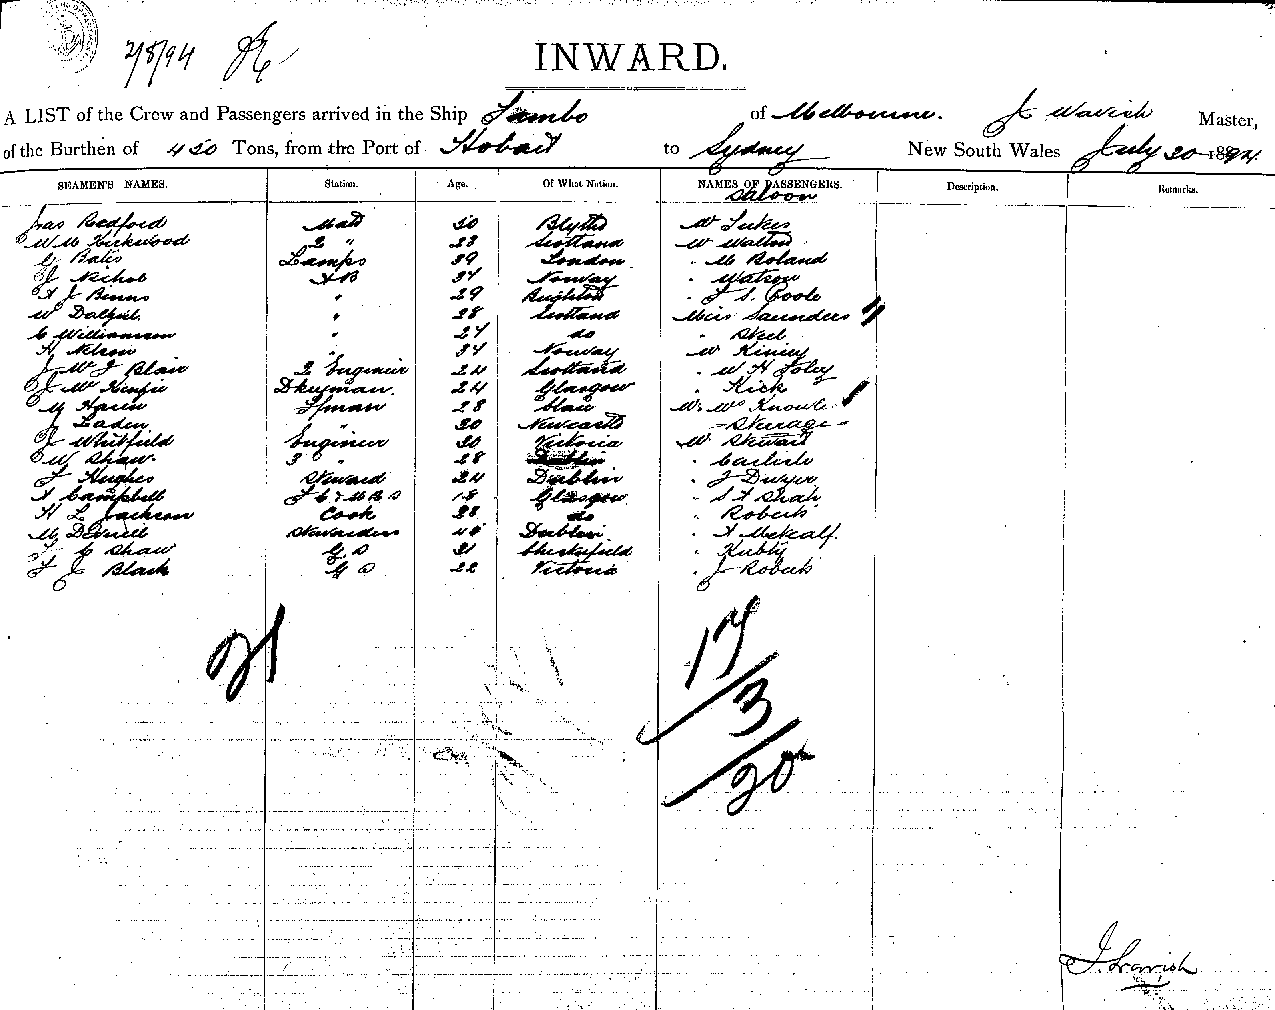 2/8/94
INWARD.
A LIST of the Crew and Passengers arrived in the Ship Tambo of Melbourne. J Wavish Master,
of the Burthen of 450 Tons, from the Port of Hobart to Sydney New South Wales July 30 1894
SEAMEN'S NAMES. Station. Age. Of What Nation. NAMES OF PASSENGERS. Description. Remarks.
Saloon
Jas Redford Mate 50 Blyth W
W Kirkwood 2 " 23 Scotland W Walton
G Bates Lamps 39 London " Boland
J Nichol AB 34 Norway " Watson
A J Binns " 29 Brighton " F S Poole
W Dalziel " 28 Scotland Miss Saunders
C Williamson " 27 do " Steel
H Nelson " 34 Norway W
J W J Blair 2 Engineer 24 Scotland " W H Foley
J Mc Kenzie Dkeyman. 24 Glasgow " Kick
M Haren Ffman 28
J Laden 30 Newcastle - Steerage -
J Whitfield Engineer 30 Victoria W Stewart
W Shaw 3 " 28 " Carlisle
J Hughes Steward 24 Dublin " J Dwyer
A Campbell 18 Glasgow
H L Jackson Cook 28 do " Roberts
M Stewardess Dublin " A Metcalf.
T C Shaw G S 21 Chesterfield
T J Black G S 22 Victoria " J Roberts
21
17
3
20
J. Wavish